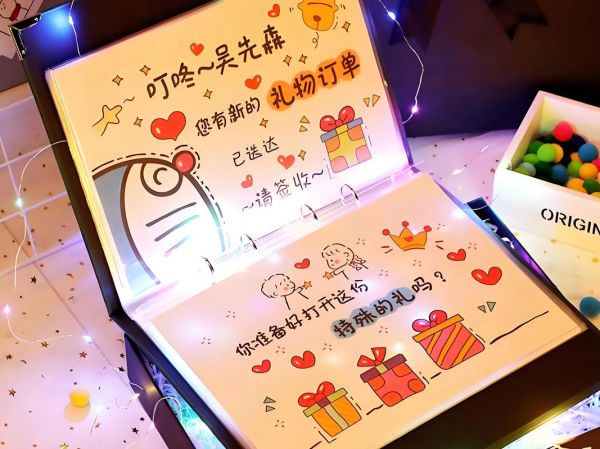 叮咚~吴先森
您有新的 礼物订单
已送达
~请签收~
你准备好打开这份
特殊的礼吗？
ORIGIN